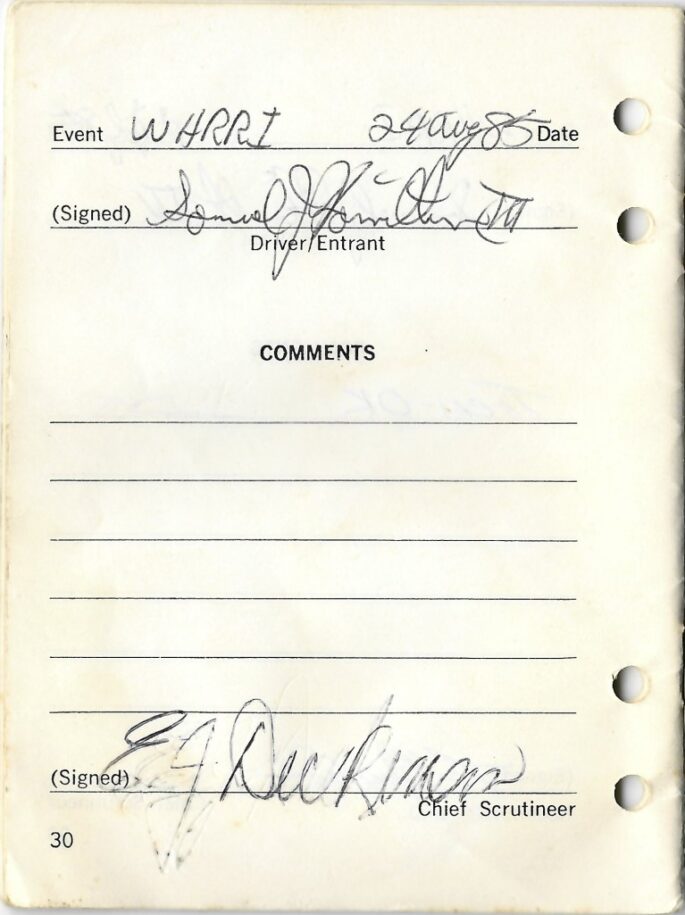 Event WHRRI 24 Aug 85 Date
(Signed) Samuel J Hamilton III
Driver/Entrant
COMMENTS
(Signed) EJ Deckman
Chief Scrutineer
30